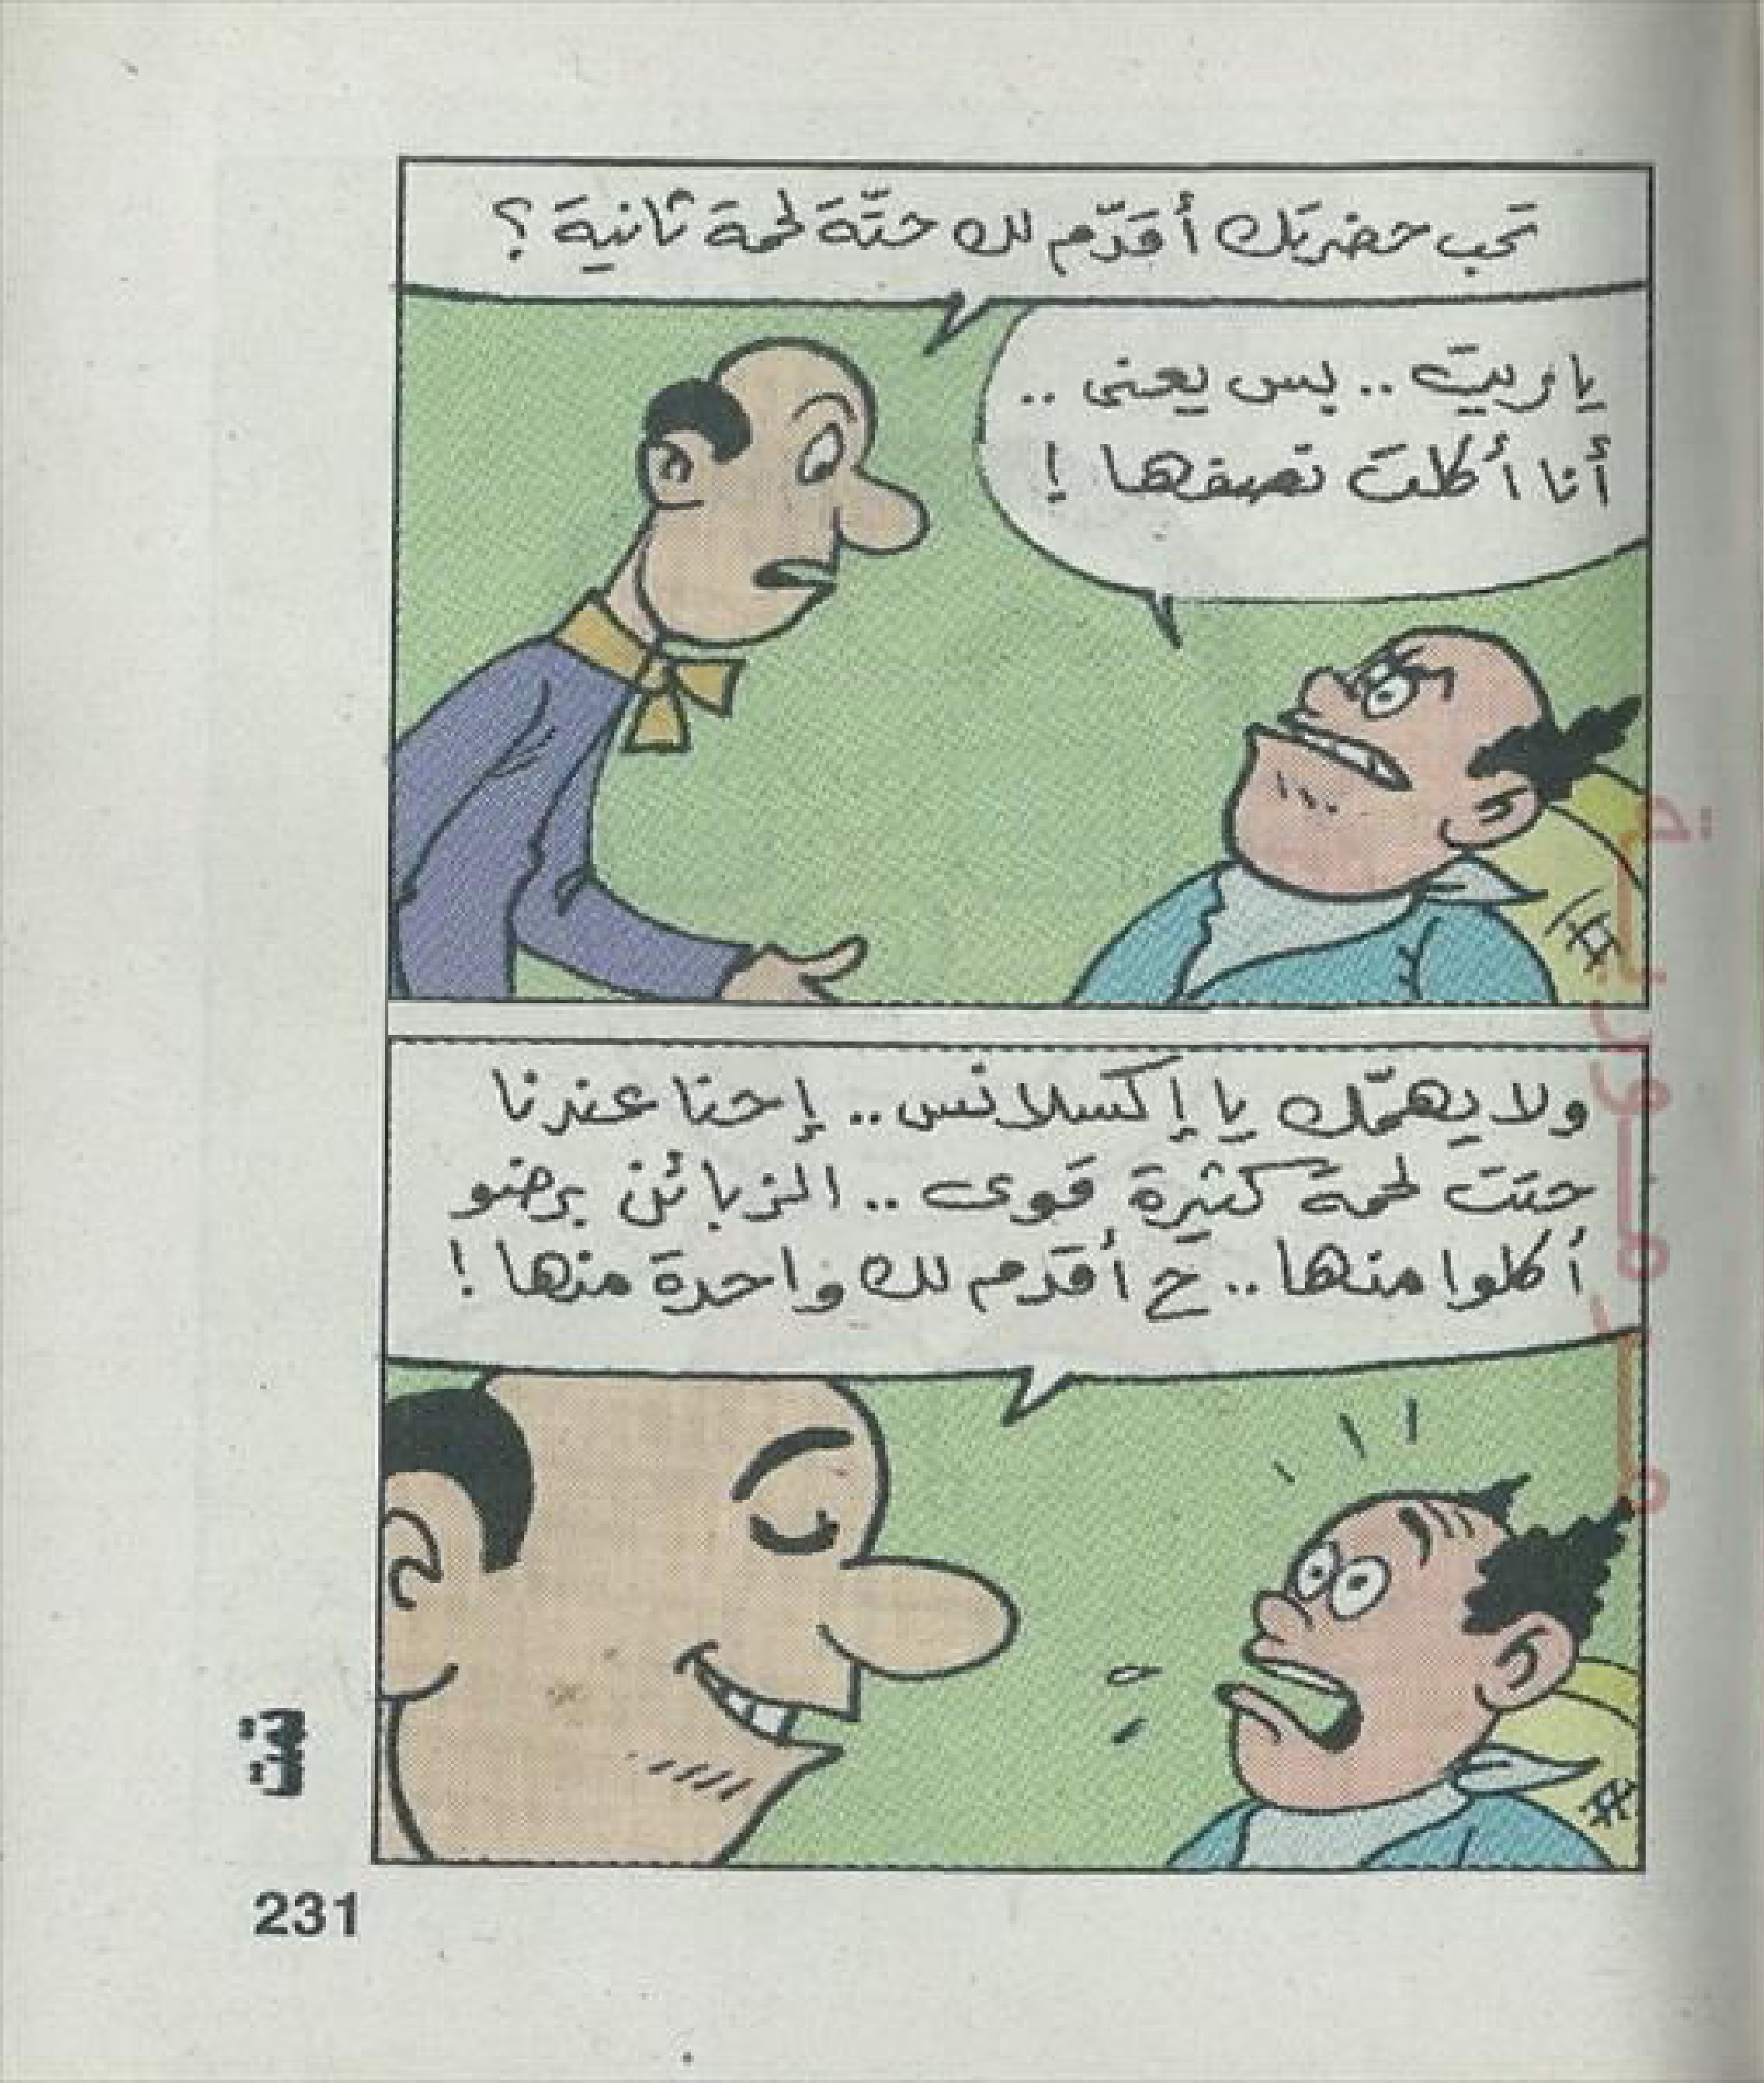 تحب حضرتك أقدّم لك حتّة لحمة ثانية ؟
ياريت .. بس يعنى ..
أنا أكلت نصفها !
ولا يهمّك يا إكسلانس .. إحنا عندنا
حتت لحمة كثيرة قوى .. الزبائن برضو
أكلوا منها .. ح أقدم لك واحدة منها !
تمت
231